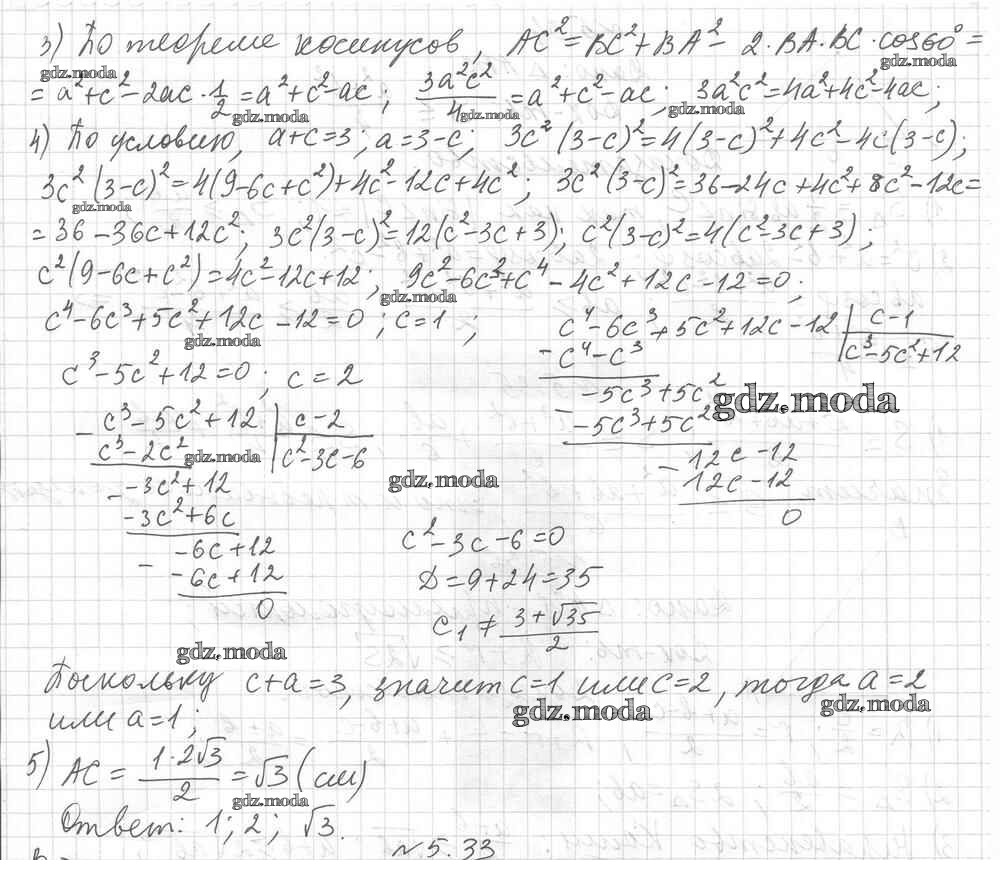 3) По теореме косинусов, AC² = BC² + BA² - 2·BA·BC·cos60° =
gdz.moda
= a² + c² - 2ac · 1/2 = a² + c² - ac; 3a²c²/4 = a² + c² - ac; 3a²c² = 4a² + 4c² - 4ac;
gdz.moda gdz.moda gdz.moda
4) По условию, a+c=3; a=3-c; 3c²(3-c)² = 4(3-c)² + 4c² - 4c(3-c);
3c²(3-c)² = 4(9-6c+c²) + 4c² - 12c + 4c²; 3c²(3-c)² = 36 - 24c + 4c² + 8c² - 12c =
gdz.moda
= 36 - 36c + 12c²; 3c²(3-c)² = 12(c²-3c+3); c²(3-c)² = 4(c²-3c+3);
c²(9-6c+c²) = 4c² - 12c + 12; 9c² - 6c³ + c⁴ - 4c² + 12c - 12 = 0;
gdz.moda
c⁴ - 6c³ + 5c² + 12c - 12 = 0; c=1;
gdz.moda
c³ - 5c² + 12 = 0; c=2
c⁴ - 6c³ + 5c² + 12c - 12 | c-1
- c⁴ - c³ | c³ - 5c² + 12
-5c³ + 5c²
- -5c³ + 5c²
gdz.moda
- 12c - 12
12c - 12
0
- c³ - 5c² + 12 | c-2
c³ - 2c² | c² - 3c - 6
gdz.moda
- -3c² + 12
-3c² + 6c
- -6c + 12
-6c + 12
0
gdz.moda
c² - 3c - 6 = 0
D = 9 + 24 = 35
c₁ ≠ (3+√35)/2
gdz.moda
Поскольку c+a=3, значит c=1 или c=2, тогда a=2
gdz.moda gdz.moda
или a=1;
5) AC = 1·2√3/2 = √3 (см)
gdz.moda
Ответ: 1; 2; √3.
№5.33